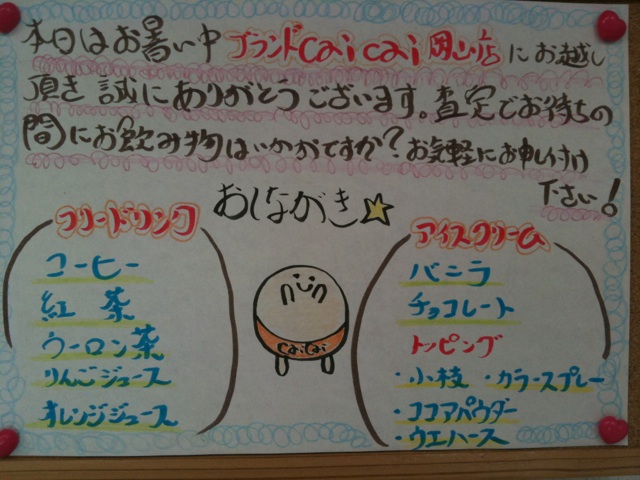 本日はお暑い中 ブランドCaiCai 岡山店 にお越し
頂き 誠にありがとうございます。査定でお待ちの
間にお飲み物はいかがですか?お気軽にお申し付け
下さい!
おしながき☆
フリードリンク
コーヒー
紅 茶
ウーロン茶
りんごジュース
オレンジジュース
CaiCai
アイスクリーム
バニラ
チョコレート
トッピング
・小枝 ・カラースプレー
・ココアパウダー
・ウエハース